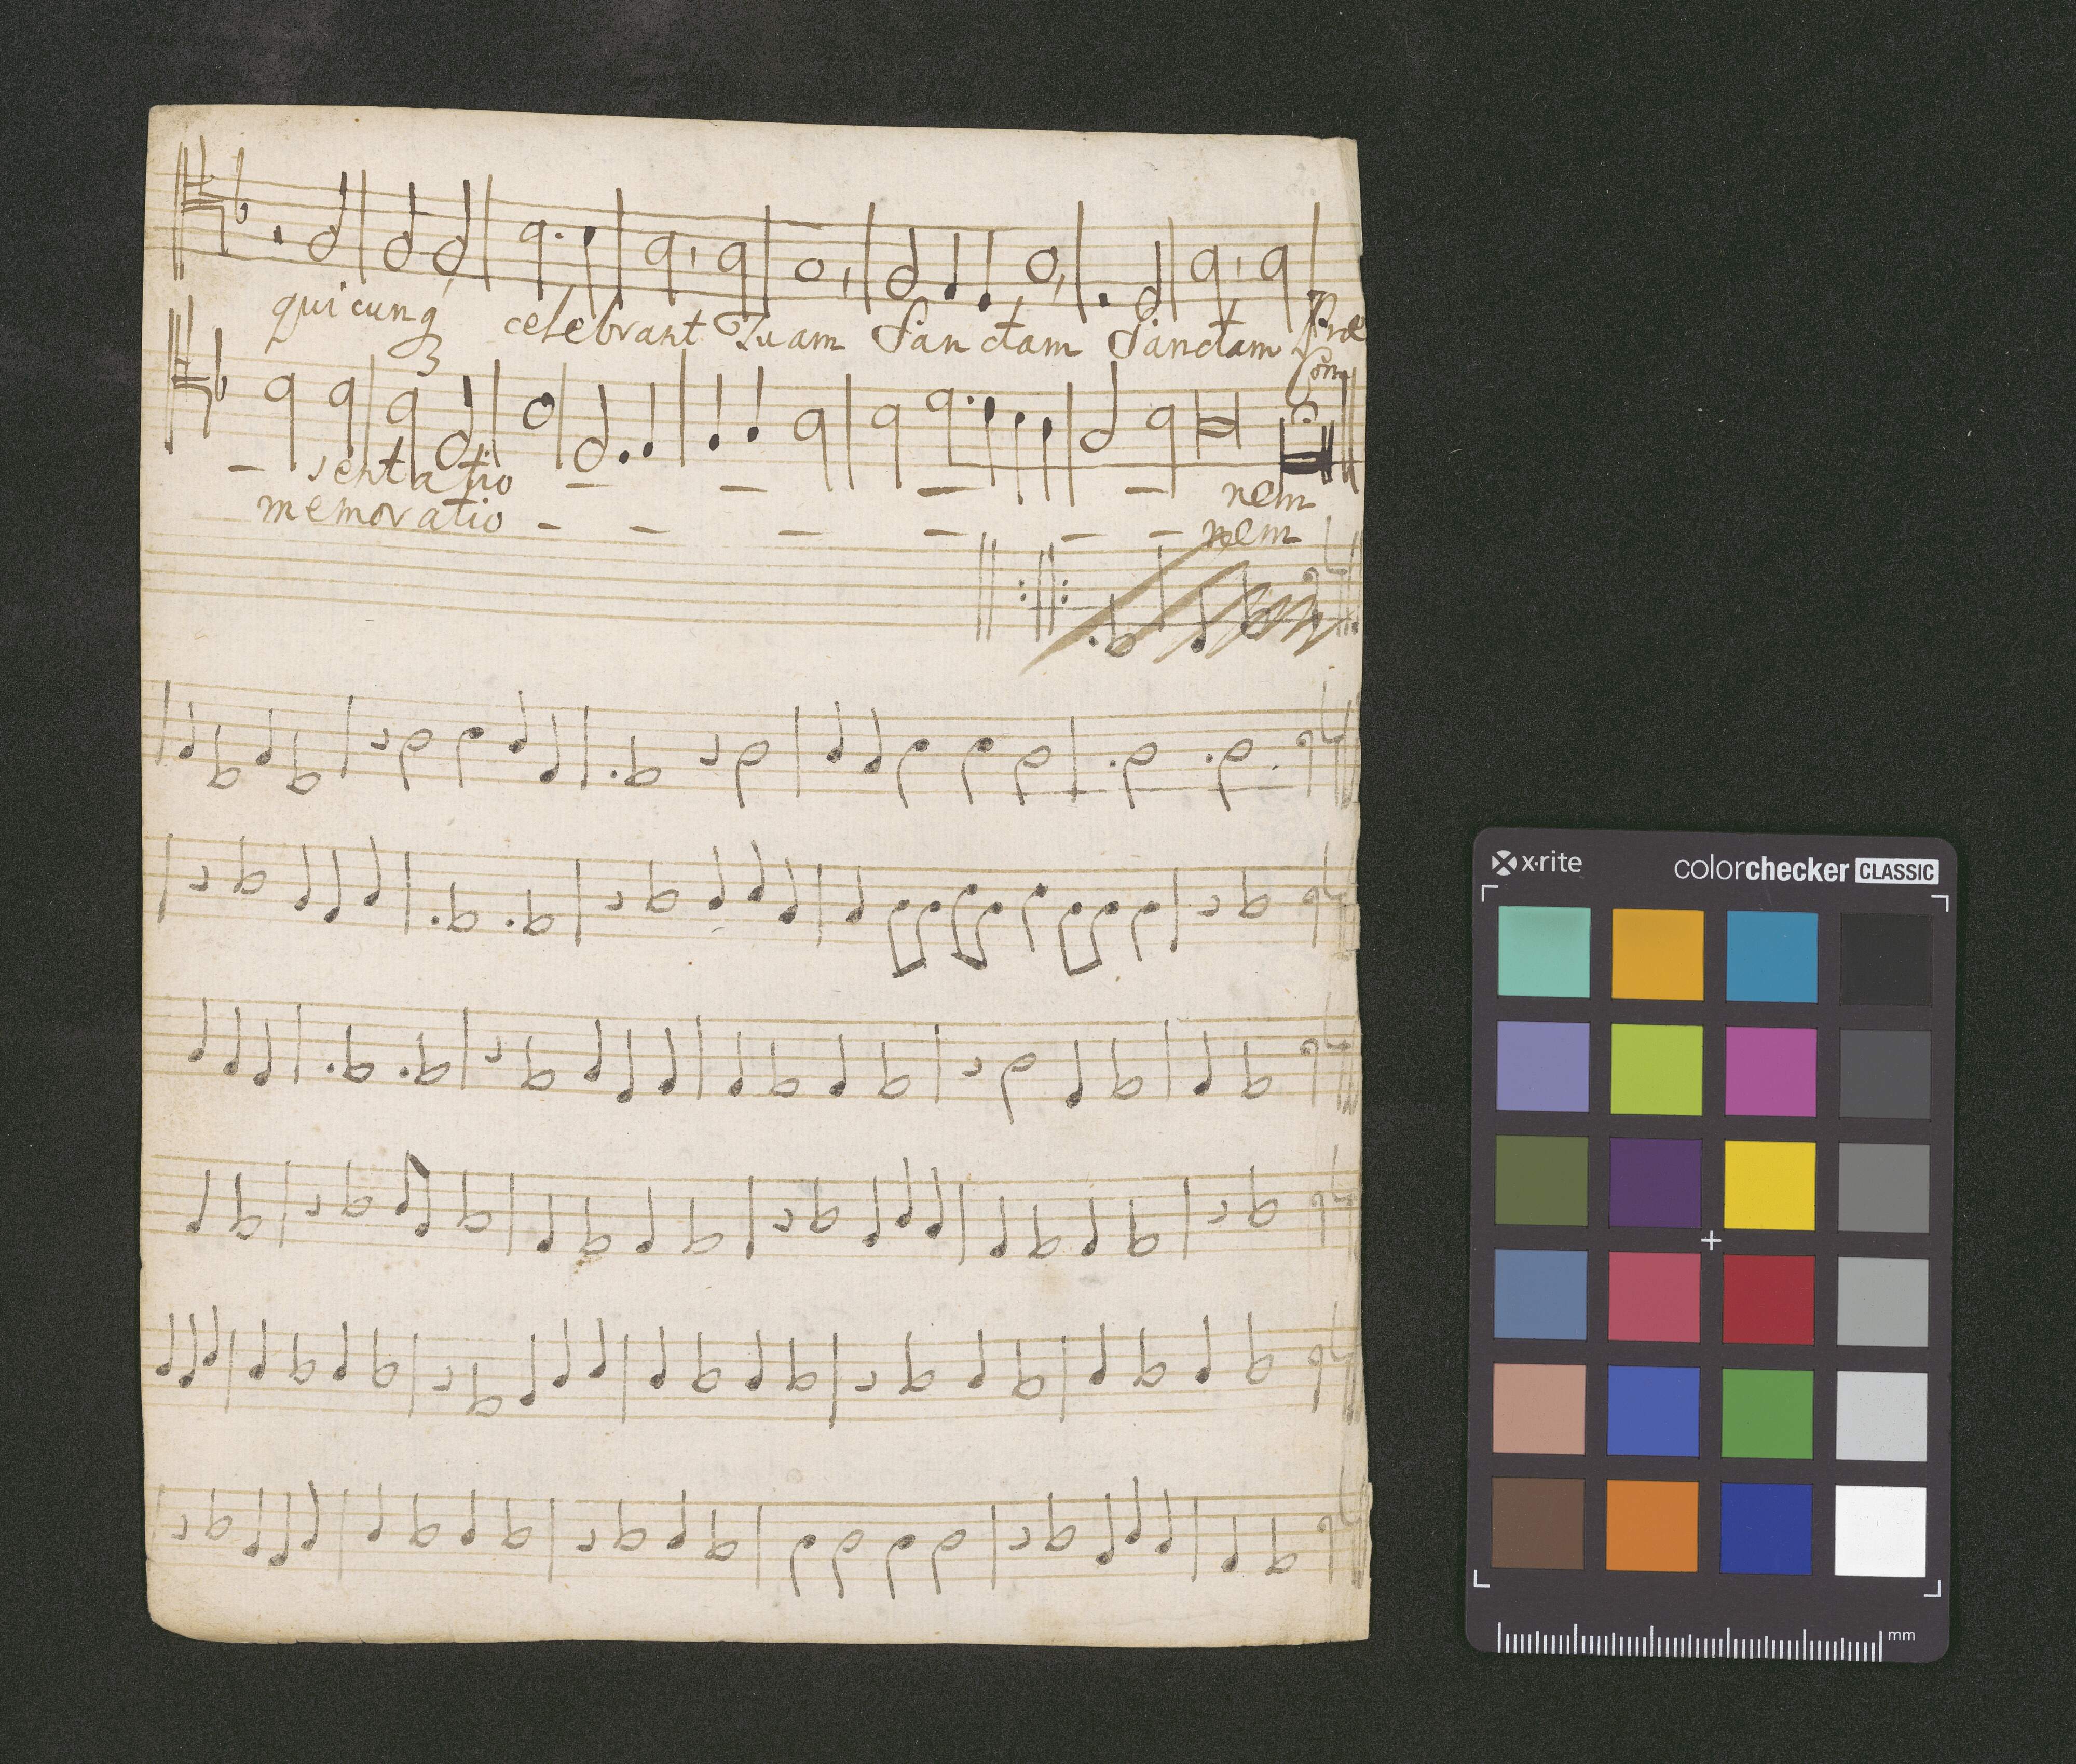 quicunq́3 celebrant Tuam Sanctam Sanctam Præ
Com
- sentatio - - - - nem
memoratio - - - - - - nem
x-rite colorchecker CLASSIC
mm